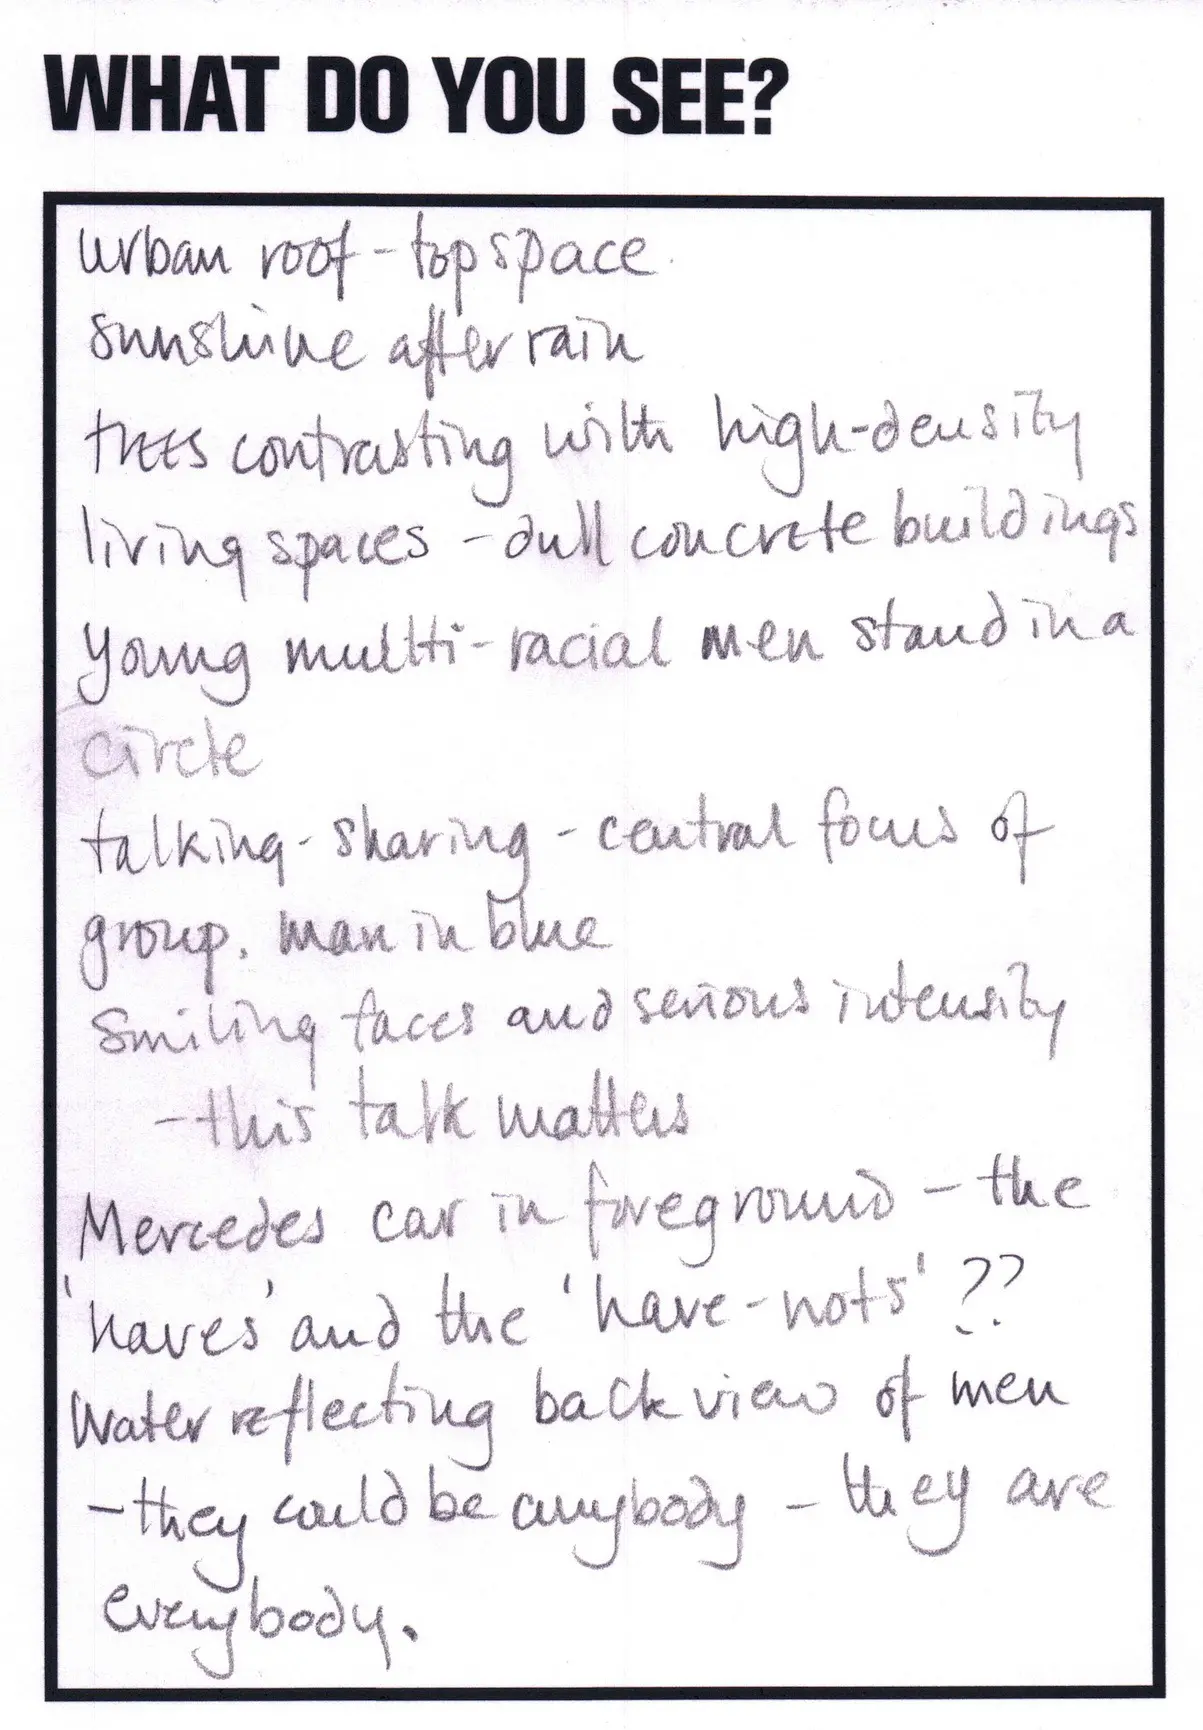 WHAT DO YOU SEE?
urban roof-top space
sunshine after rain
trees contrasting with high-density
living spaces - dull concrete buildings
young multi-racial men stand in a
circle
talking - sharing - central focus of
group. man in blue
Smiling faces and serious intensity
- this talk matters
Mercedes car in foreground - the
'haves' and the 'have-nots' ??
Water reflecting back view of men
- they could be anybody - they are
everybody.